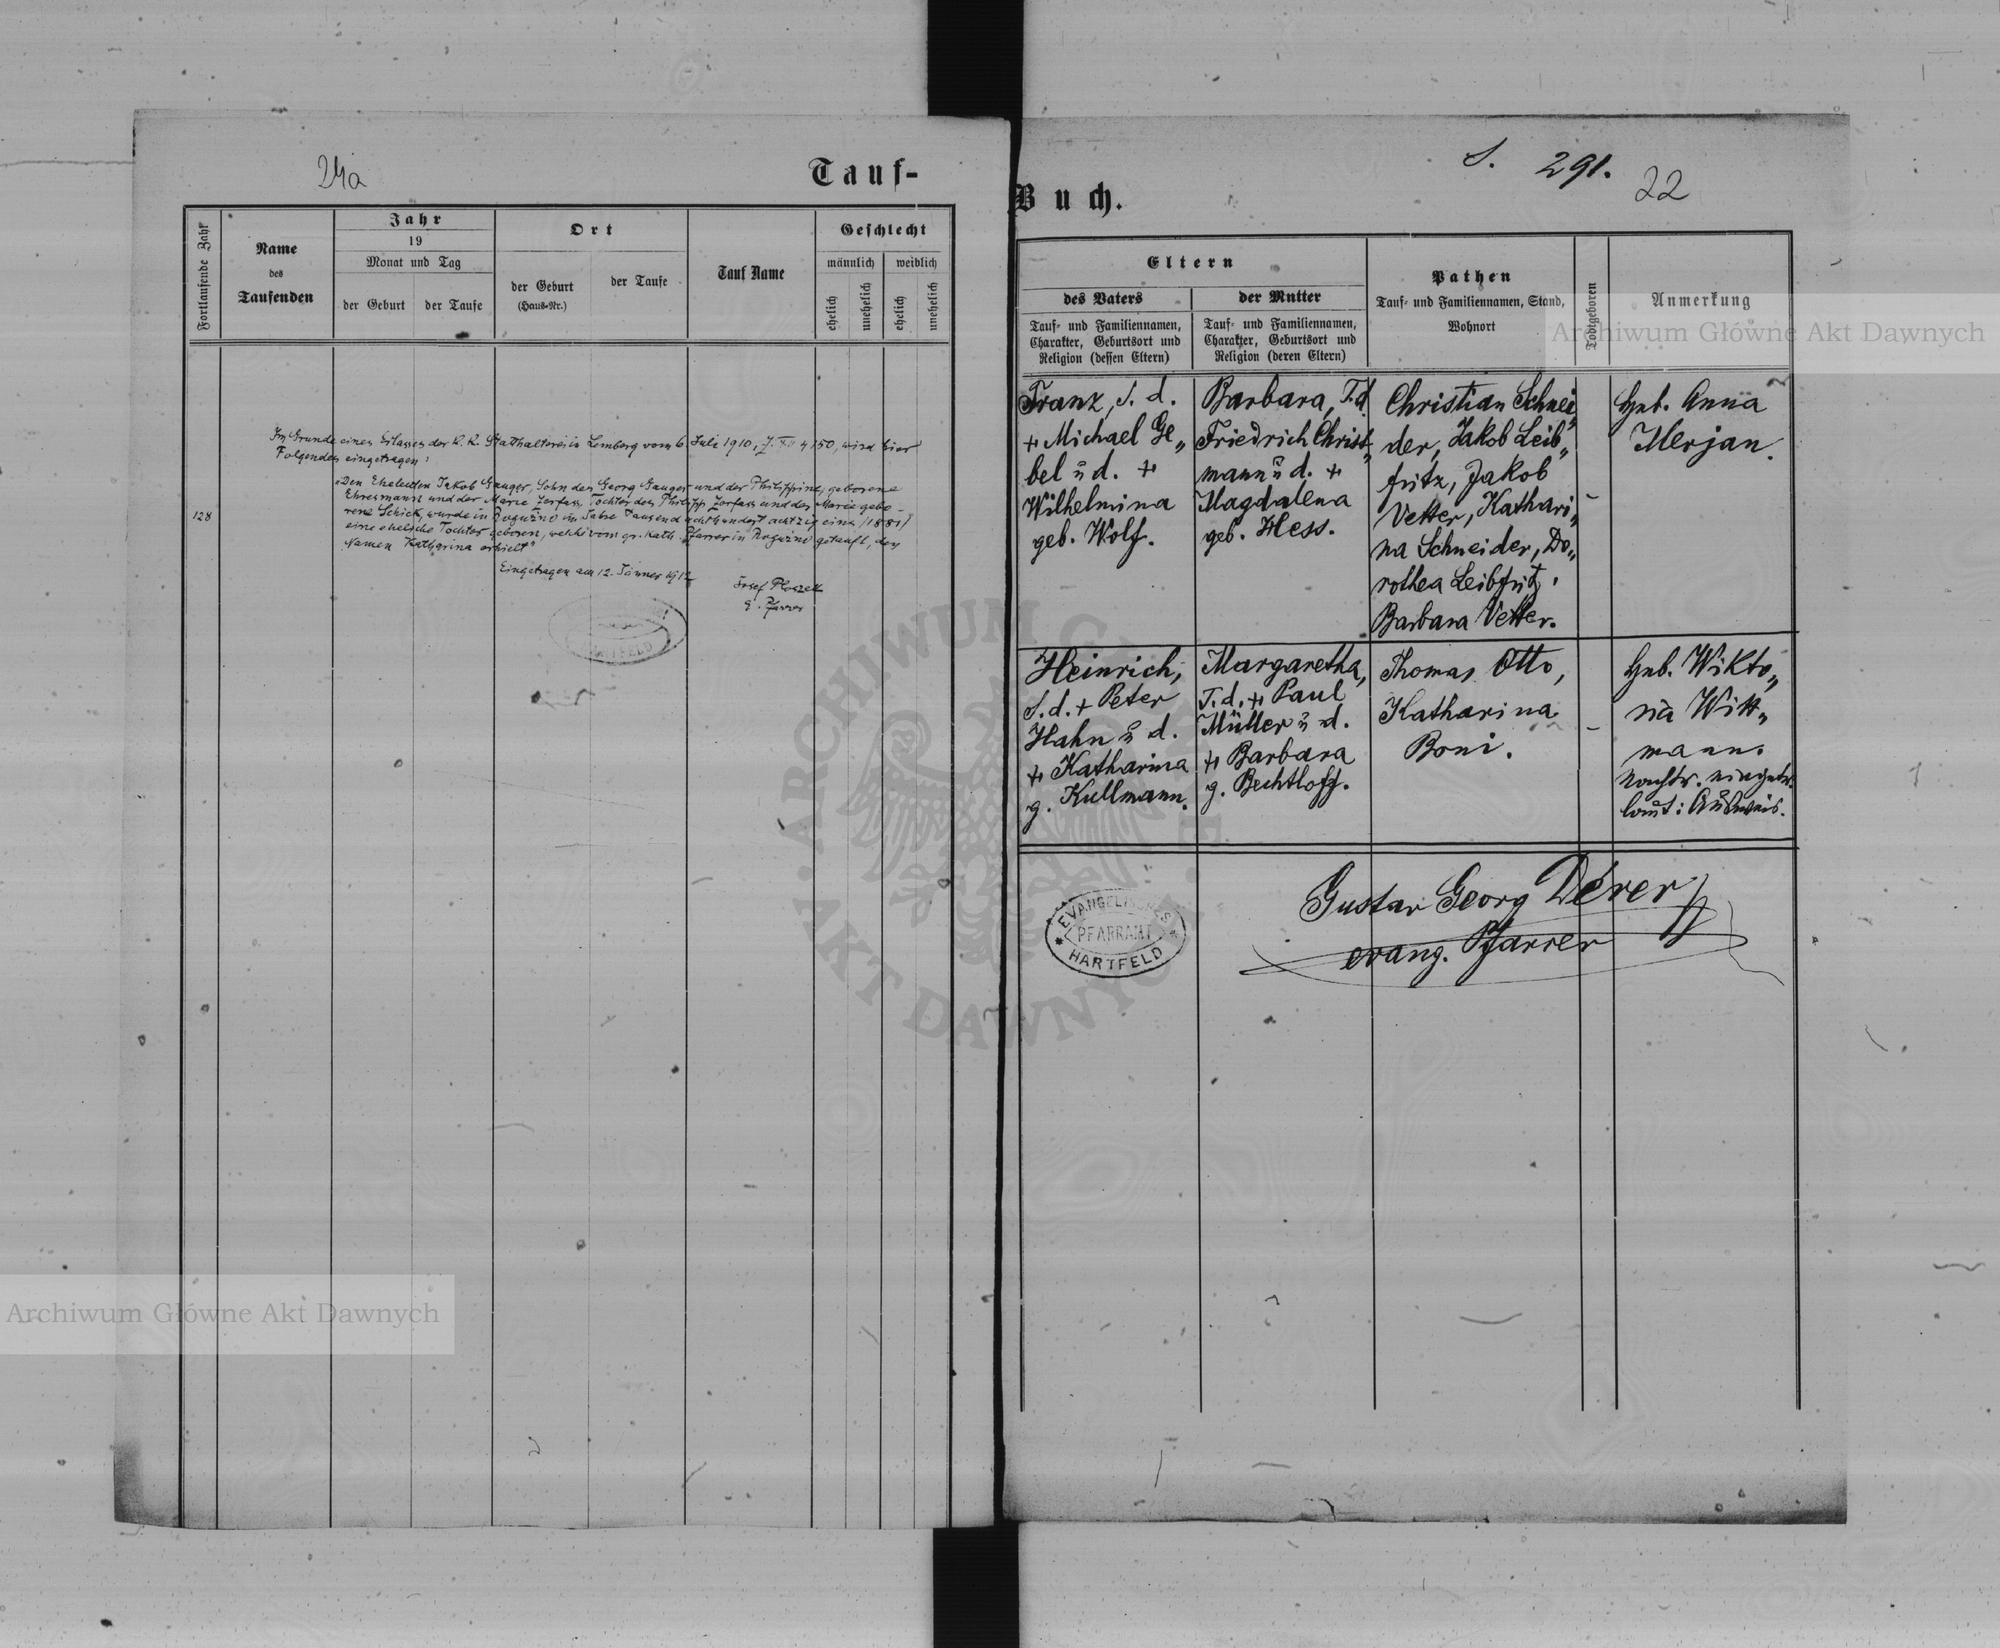 24a
Tauf-
Fortlaufende Zahl
Name
des
Taufenden
Jahr
19
Monat und Tag
der Geburt
der Taufe
Ort
der Geburt
(Haus-Nr.)
der Taufe
Tauf Name
Geschlecht
männlich
weiblich
ehelich
unehelich
ehelich
unehelich
Im Grunde eines Erlasses der k. k. Statthalterei in Lemberg vom 6. Juli 1910, Z. XII 4150, wird hier
Folgendes eingetragen:
"Den Eheleuten Jakob Gauger, Sohn des Georg Gauger und der Philippine, geborene
Ehresmann und der Marie Zerfass, Tochter des Philipp Zerfass und der Marie gebo-
128
rene Schick, wurde in Roguźno im Jahre Tausend achthundert achtzig eins (1881)
eine eheliche Tochter geboren, welche vom gr. kath. Pfarrer in Roguźno getauft, den
Namen Katharina erhielt"
Eingetragen am 12. Jänner 1912
Josef
Pfarrer
HARTFELD
S. 291.
22
Buch.
Eltern
des Vaters
der Mutter
Tauf- und Familiennamen,
Charakter, Geburtsort und
Religion (dessen Eltern)
Tauf- und Familiennamen,
Charakter, Geburtsort und
Religion (deren Eltern)
Pathen
Tauf- und Familiennamen, Stand,
Wohnort
Todtgeboren
Anmerkung
Franz, S. d.
+ Michael Ge„
bel u d. +
Wilhelmina
geb. Wolf.
Barbara, T. d.
Friedrich Christ„
mann u d. +
Magdalena
geb. Hess.
Christian Schnei„
der, Jakob Leib„
fritz, Jakob
Vetter, Kathari„
na Schneider, Do„
rothea Leibfritz,
Barbara Vetter.
-
Heb. Anna
Merjan.
Heinrich,
S. d. + Peter
Hahn u d.
+ Katharina
g. Kullmann.
Margaretha,
T. d. + Paul
Müller u d.
+ Barbara
g. Bechtloff.
Thomas Otto,
Katharina
Boni.
-
Heb. Wikto„
ria Witt„
mann.
Nachtr. eingetr.
laut: Ausweis.
Gustav Georg Dérer
evang. Pfarrer
EVANGELISCHES
PFARRAMT
HARTFELD
Archiwum Główne Akt Dawnych
Archiwum Główne Akt Dawnych
ARCHIWUM GŁÓWNE
AKT DAWNYCH